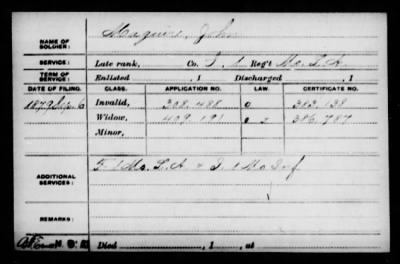 NAME OF SOLDIER: Maguire, John
SERVICE: Late rank, Co. I, 1 Reg't Mo. L. A.
TERM OF SERVICE: Enlisted , 1 Discharged , 1
DATE OF FILING. CLASS. APPLICATION NO. LAW. CERTIFICATE NO.
1879 Sep. 6 Invalid, 308.488 383.138
Widow, 409.191 386.787
Minor,
ADDITIONAL SERVICES: 1 Mo. L. A. & 1 Mo Inf
REMARKS:
Died , 1 , at